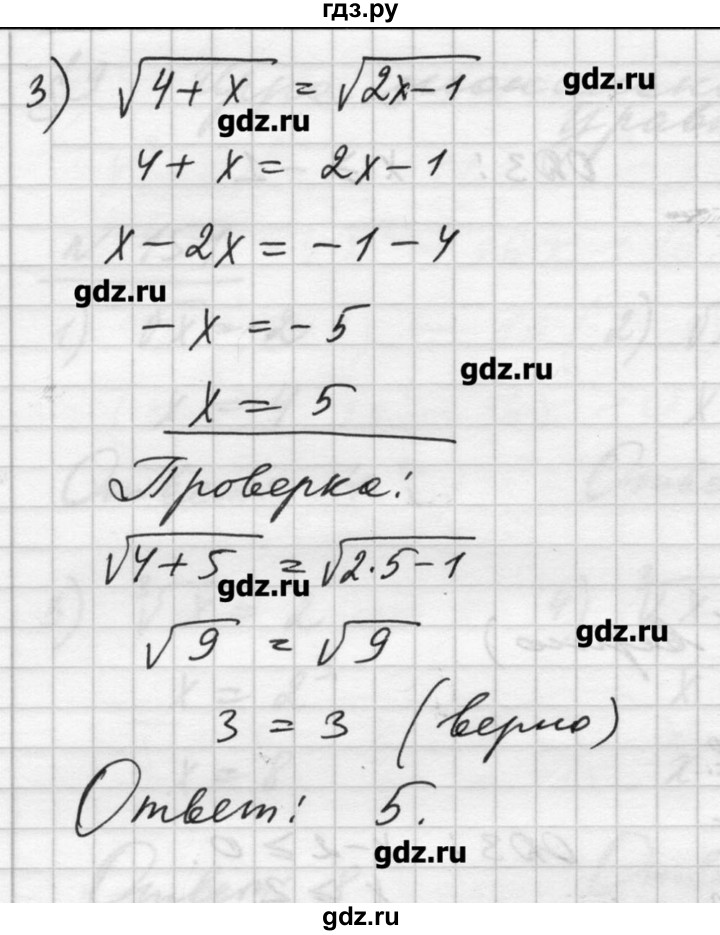 гдз.ру
3) √(4+x) = √(2x-1)
gdz.ru
gdz.ru
4+x = 2x-1
x-2x = -1-4
gdz.ru
-x = -5
gdz.ru
x = 5
Проверка:
√(4+5) = √(2·5-1)
gdz.ru
√9 = √9
gdz.ru
3 = 3 (верно)
Ответ: 5.
gdz.ru
gdz.ru